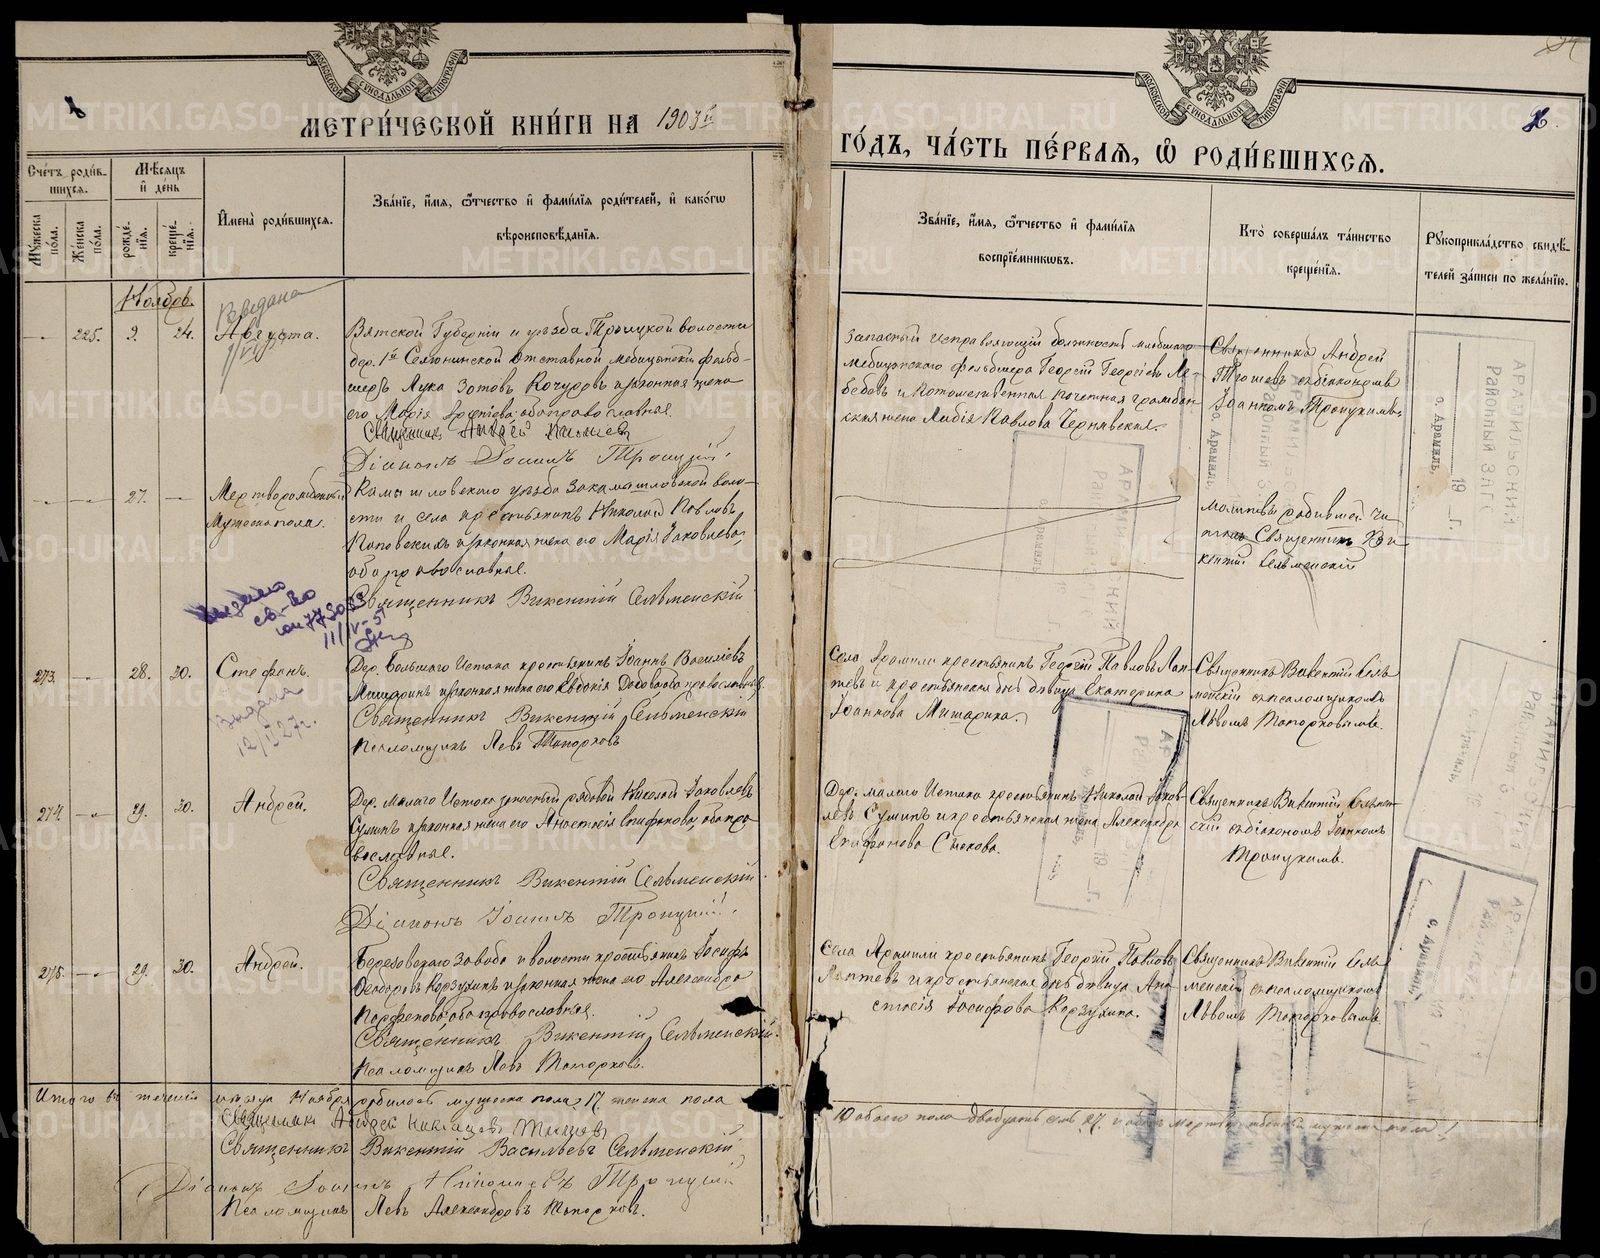 МЕТРИ́ЧЕСКОЙ КНИ́ГИ НА 1903й
ГО́ДЪ, ЧА́СТЬ ПЕ́РВАѦ, Ѡ҆ РОДИ́ВШИХСѦ.
Сче́тъ роди́вшихсѧ.
Мѣ́сѧцъ и҆ де́нь
И҆мена̀ роди́вшихсѧ.
Зва́нїе, и҆́мѧ, ѻ҆́тчество и҆ фами́лїѧ роди́телей, и҆ како́гѡ
вѣроисповѣ́данїѧ.
Мꙋ́жеска по́ла.
Же́нска по́ла.
рожде́нїѧ.
креще́нїѧ.
Зва́нїе, и҆́мѧ, ѻ҆́тчество и҆ фами́лїѧ
воспрїе́мниковъ.
Кто̀ соверша́лъ та́инство
креще́нїѧ.
Рꙋкоприкла́дство свидѣ́телей за́писи по жела́нїю.
Ноябрь.
225. 9. 24. Августа.
Вятской Губерніи и уѣзда Троицкой волости
дер. 1й Селюнинской отставной медицинскій фельдшеръ Лука Зотовъ Кочуровъ и законная жена
его Марія оба православные.
Священникъ Андрей
Діаконъ Іоаннъ Троицкій.
Запасный исправляющій должность младшаго
медицинскаго фельдшера Георгій Георгіевъ Лебедевъ и Потомственная почетная гражданская жена Лидія Павлова Чернявская.
Священникъ Андрей
съ діакономъ
Іоанномъ Троицкимъ
27. Мертворожденный
Мужеска пола.
Камышловскаго уѣзда Закамышловской волости и села крестьянинъ Николай Павловъ
Поповскихъ и законная жена его Марія Іаковлева,
оба православные.
Священникъ Викентій Сельменскій
молитву родившей читалъ Священникъ Викентій Сельменскій
273. 28. 30. Стефанъ.
Дер. Большаго Истока крестьянинъ Іоаннъ Василіевъ
Мишаринъ и законная жена его Евдокія оба православные.
Священникъ Викентій Сельменскій
Псаломщикъ Левъ Топорковъ
Села Арамили крестьянинъ Георгій Павловъ Лаптевъ и крестьянская дѣвица Екатерина
Іоаннова Мишарина.
Священникъ Викентій Сельменскій съ псаломщикомъ
Львомъ Топорковымъ.
274 29. 30. Андрей.
Дер. малаго Истока запасный рядовой Николай Іаковлевъ
Сушинъ и законная жена его Анастасія Епифанова, оба православные.
Священникъ Викентій Сельменскій
Діаконъ Іоаннъ Троицкій.
Дер. малаго Истока крестьянинъ Николай Іаковлевъ Сушинъ и крестьянская жена Александра
Епифанова
Священникъ Викентій Сельменскій съ діакономъ Іоанномъ
Троицкимъ.
275. 29. 30. Андрей.
Березовскаго завода и волости крестьянинъ Іосифъ
Ѳеодоровъ Корзухинъ и законная жена его Александра
Парѳенова, оба православные.
Священникъ Викентій Сельменскій.
Псаломщикъ Левъ Топорковъ.
Села Арамили крестьянинъ Георгій Павловъ
Лаптевъ и крестьянская дѣвица Анастасія Іосифова Корзухина.
Священникъ Викентій Сельменскій съ псаломщикомъ
Львомъ Топорковымъ
Итого въ теченіи мѣсяца Ноября родилось мужеска пола 17, женска пола
10 обоего пола двадцать семь 27, и одинъ мертворожденный мужеска пола
Священникъ Андрей
Священникъ Викентій Васильевъ Сельменскій
Діаконъ Іоаннъ Троицкій
Псаломщикъ Левъ Александровъ Топорковъ.
АРАМИЛЬСКИЙ
Районный ЗАГС
с. Арамиль.
METRIKI.GASO-URAL.RU